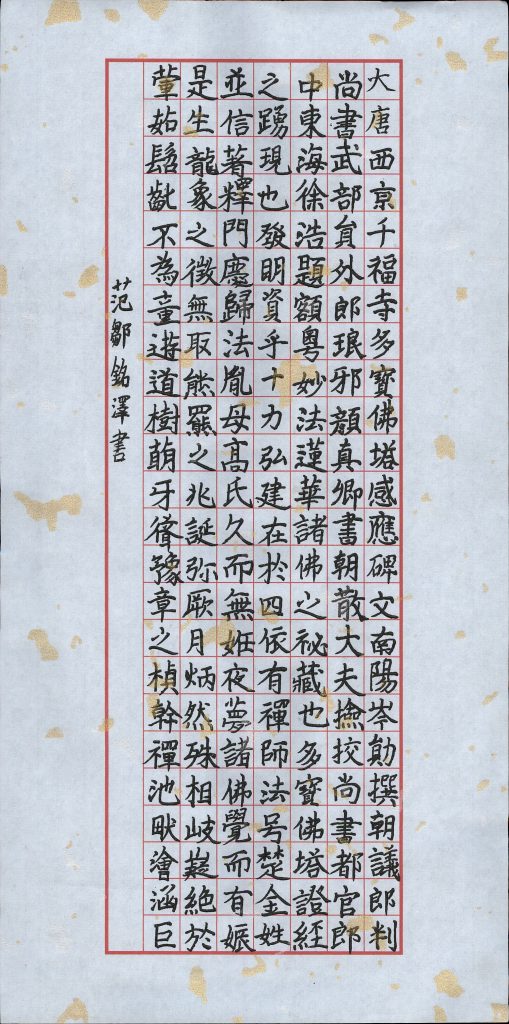 大唐西京千福寺多寶佛塔感應碑文南陽岑勛撰朝議郎判
尚書武部員外郎琅邪顏真卿書朝散大夫撿挍尚書都官郎
中東海徐浩題額粵妙法蓮華諸佛之祕藏也多寶佛塔證經
之踴現也發明資乎十力弘建在於四依有禪師法号楚金姓
並信著釋門慶歸法胤母髙氏久而無姙夜夢諸佛覺而有娠
是生龍象之徵無取熊羆之兆誕弥厥月炳然殊相岐嶷絕於
葷茹髫齓不為童遊道樹萌牙聳豫章之楨幹禪池畎澮涵巨
范鄒銘澤書